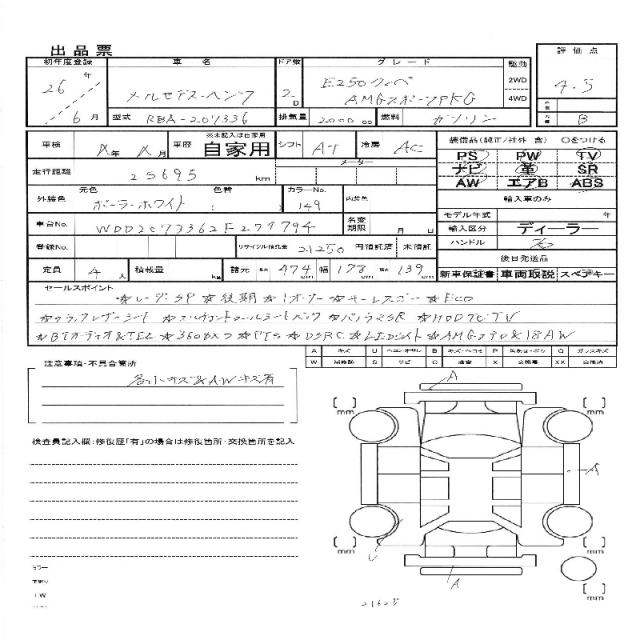 出品票
初年度登録 車名 ドア数 グレード 駆動 評価点
26年 メルセデス・ベンツ 2D E250クーペ 2WD 4.5
6月 AMGスポーツPKG 4WD
型式 RBA-207336 排気量 2000 cc 燃料 ガソリン B
※未記入は自家用
車検 年 月 車歴 自家用 シフト AT 冷房 AC 装備品(純正/社外 含) ○をつける
メーター PS PW TV
走行距離 25695 km ナビ 革 SR
元色 色替 カラーNo. AW エアB ABS
外装色 ポーラーホワイト 149 内装色 輸入車のみ
モデル年式 年
車台No. WDD2073362F277794 名変期限 月 日 輸入区分 ディーラー
登録No. リサイクル預託金 21250 円預託済 未預託 ハンドル 右
後日発送品
定員 4人 積載量 kg 諸元 長さ 474 cm 幅 178 cm 高さ 139 cm 新車保証書 車両取説 スペアキー
セールスポイント
★レーダーSP ★後期 ★1オーナー ★キーレスゴー ★ECO
★ブラックレザーシート ★メモリー付シートヒーター ★パノラマSR ★HDDナビTV
★BTオーディオ&TEL ★360°カメラ ★PTS ★DSRC ★LEDライト ★AMGエアロ&18AW
A キズ U B P G ガラスキズ
W S C X XX
注意事項・不具合箇所
各小キズ&AWキズ有
検査員記入欄:修復歴「有」の場合は修復箇所・交換箇所を記入
A
mm mm
A
U
mm mm
A
mm
カラー
21625